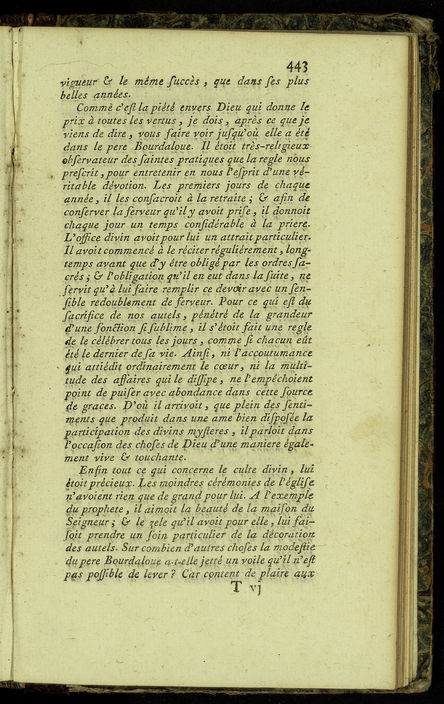 443
vigueur & le même ſuccès, que dans ſes plus
belles années.
Comme c'eſt la piété envers Dieu qui donne le
prix à toutes les vertus, je dois, après ce que je
viens de dire, vous faire voir juſqu'où elle a été
dans le pere Bourdaloue. Il étoit très-religieux
obſervateur des ſaintes pratiques que la regle nous
preſcrit, pour entretenir en nous l'eſprit d'une vé-
ritable dévotion. Les premiers jours de chaque
année, il les conſacroit à la retraite ; & afin de
conſerver la ferveur qu'il y avoit priſe, il donnoit
chaque jour un temps conſidérable à la priere.
L'office divin avoit pour lui un attrait particulier.
Il avoit commencé à le réciter réguliérement, long-
temps avant que d'y être obligé par les ordres ſa-
crés ; & l'obligation qu'il en eut dans la ſuite, ne
ſervit qu'à lui faire remplir ce devoir avec un ſen-
ſible redoublement de ferveur. Pour ce qui eſt du
ſacrifice de nos autels, pénétré de la grandeur
d'une fonction ſi ſublime, il s'étoit fait une regle
de le célébrer tous les jours, comme ſi chacun eût
été le dernier de ſa vie. Ainſi, ni l'accoutumance
qui attiédit ordinairement le cœur, ni la multi-
tude des affaires qui le diſſipe, ne l'empêchoient
point de puiſer avec abondance dans cette ſource
de graces. D'où il arrivoit, que plein des ſenti-
ments que produit dans une ame bien diſpoſée la
participation des divins myſteres, il parloit dans
l'occaſion des choſes de Dieu d'une maniere égale-
ment vive & touchante.
Enfin tout ce qui concerne le culte divin, lui
étoit précieux. Les moindres cérémonies de l'égliſe
n'avoient rien que de grand pour lui. A l'exemple
du prophete, il aimoit la beauté de la maiſon du
Seigneur ; & le zele qu'il avoit pour elle, lui fai-
ſoit prendre un ſoin particulier de la décoration
des autels. Sur combien d'autres choſes la modeſtie
du pere Bourdaloue a-t-elle jetté un voile qu'il n'eſt
pas poſſible de lever ? Car content de plaire aux
T vj